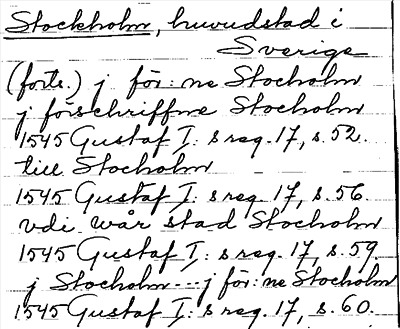 Stockholm, huvudstad i
Sverige
(forts.) j för:ne Stocholm
j förschriffne Stocholm
1545 Gustaf I:s reg. 17, s. 52.
till Stocholm
1545 Gustaf I:s reg. 17, s. 56.
vdi wår stad Stocholm
1545 Gustaf I:s reg. 17, s. 59.
j Stocholm --- j för:ne Stocholm
1545 Gustaf I:s reg. 17, s. 60.